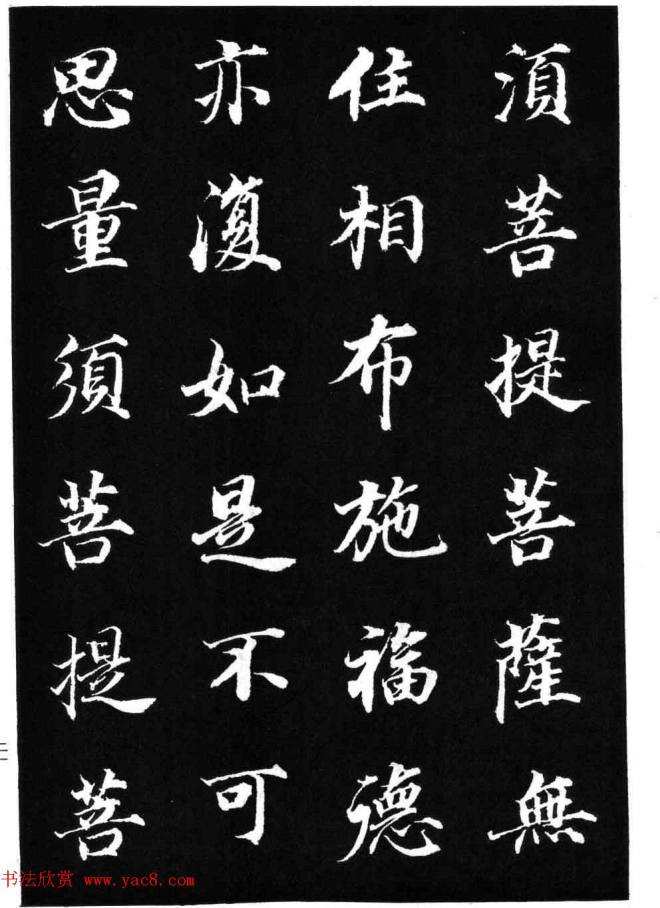 湏菩提菩薩無
住相布施福德
亦復如是不可
思量須菩提菩
書法欣赏 www.yac8.com